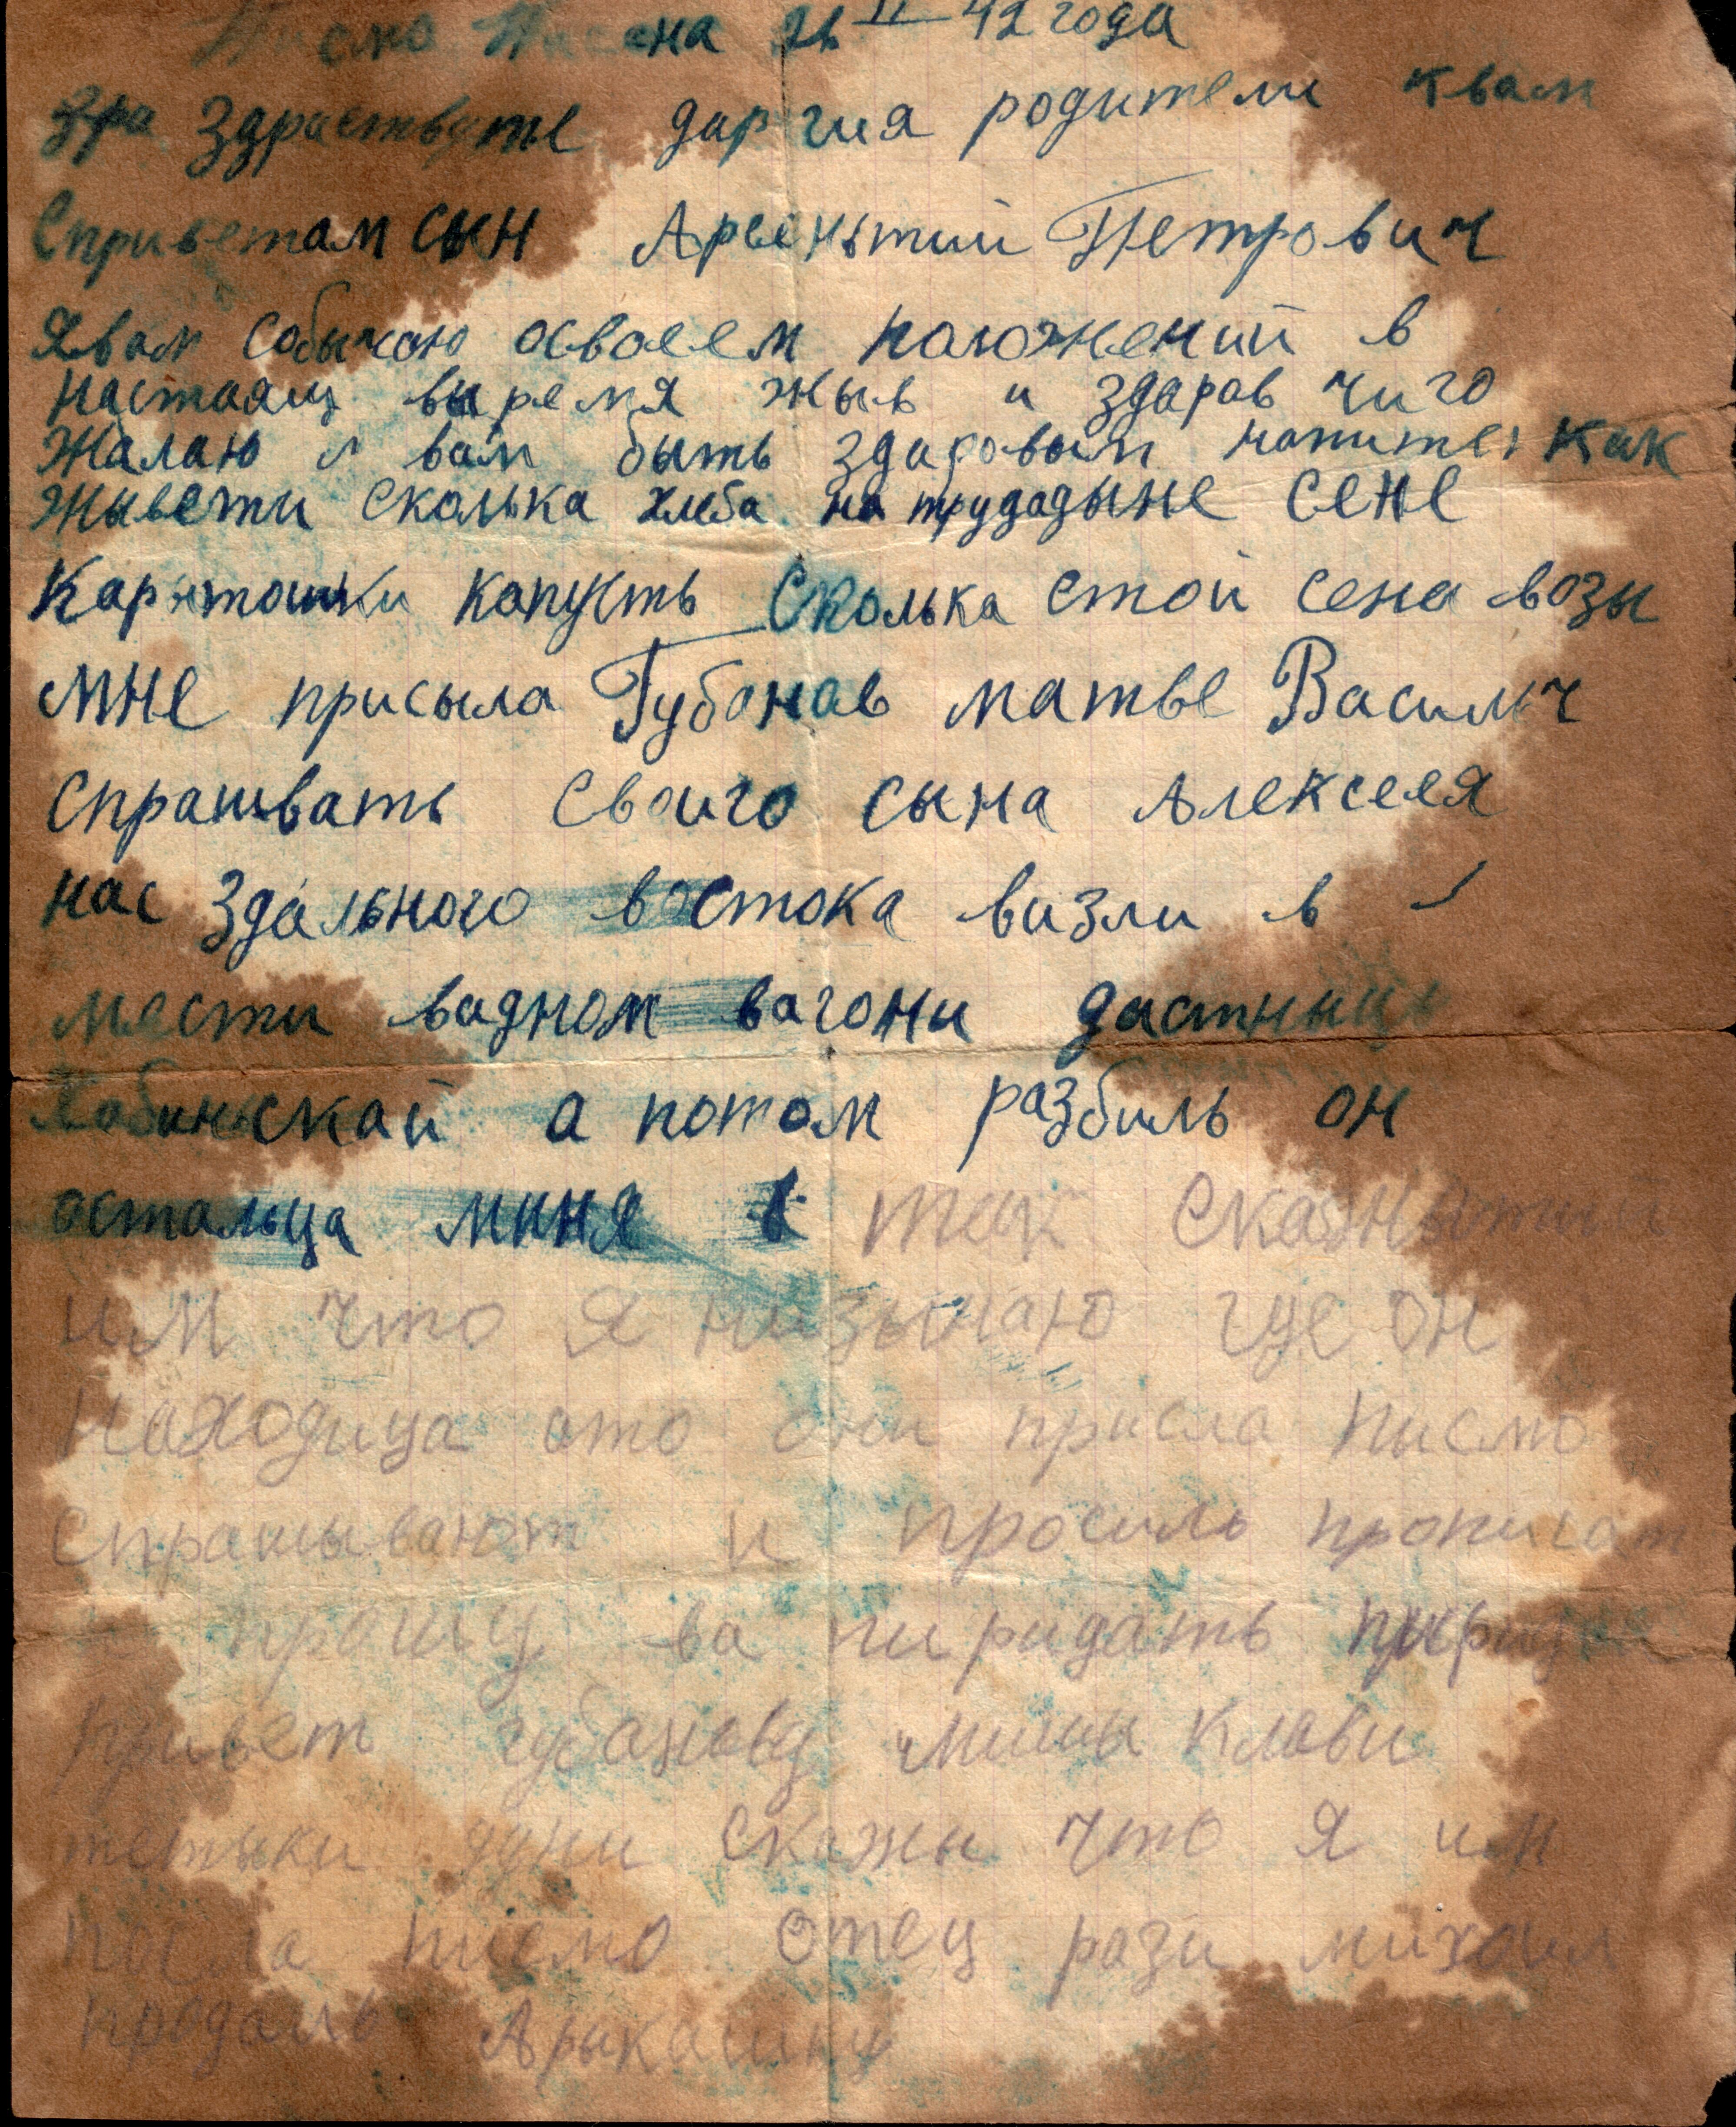 Писмо Писана 26 II 42 года
Здраствуте даргия родители квам
Сприветам сын Арсеньтий Петрович
Явам собычаю освоеем положений в
настоящ выремя жыв и здарав чиго
Жалаю и вам быть здаровым
как
Жывети сколька хлеба на трудадыне сене
Карытошки капусть Сколька стой сена возы
мне присыла Губанав матве Василич
спрашвать своиго сына Алексея
нас Здального востока визли в
мести вадном вагони дастныць
а потом разбиль он
осталься миня в так
им что я низынаю где он
Находица ото они присла писмо
спрашывают и просиль прописат
прошу ва пиридать
привет губанову миши клави
скажы что я им
посла писмо Отец рази михаил
продаль